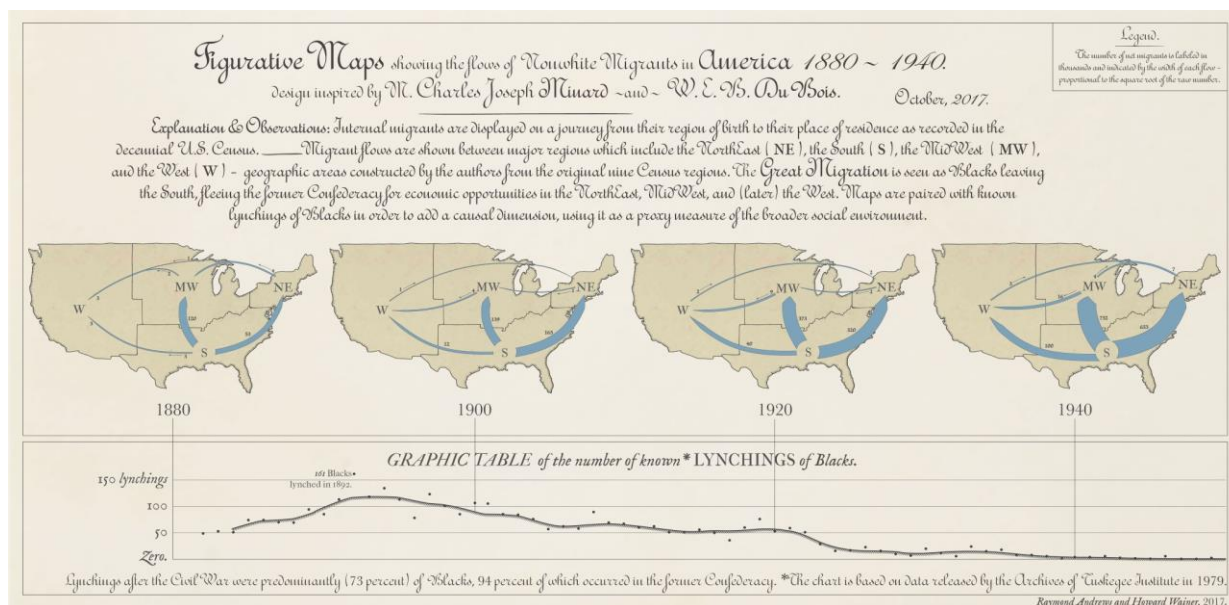 Figurative Maps showing the flows of Nonwhite Migrants in America 1880 ~ 1940.
design inspired by M. Charles Joseph Minard ~and~ W. E. B. Du Bois.
October, 2017.
Legend.
The number of net migrants is labeled in
thousands and indicated by the width of each flow -
proportional to the square root of the raw number.
Explanation & Observations: Internal migrants are displayed on a journey from their region of birth to their place of residence as recorded in the
decennial U.S. Census. ____Migrant flows are shown between major regions which include the NorthEast (NE), the South (S), the MidWest (MW),
and the West (W) - geographic areas constructed by the authors from the original nine Census regions. The Great Migration is seen as Blacks leaving
the South, fleeing the former Confederacy for economic opportunities in the NorthEast, MidWest, and (later) the West. Maps are paired with known
lynchings of Blacks in order to add a causal dimension, using it as a proxy measure of the broader social environment.
W MW NE S
W MW NE S
W MW NE S
W MW NE S
1880 1900 1920 1940
GRAPHIC TABLE of the number of known* LYNCHINGS of Blacks.
161 Blacks
lynched in 1892.
150 lynchings
100
50
Zero.
Lynchings after the Civil War were predominantly (73 percent) of Blacks, 94 percent of which occurred in the former Confederacy. *The chart is based on data released by the Archives of Tuskegee Institute in 1979.
Raymond Andrews and Howard Wainer, 2017.